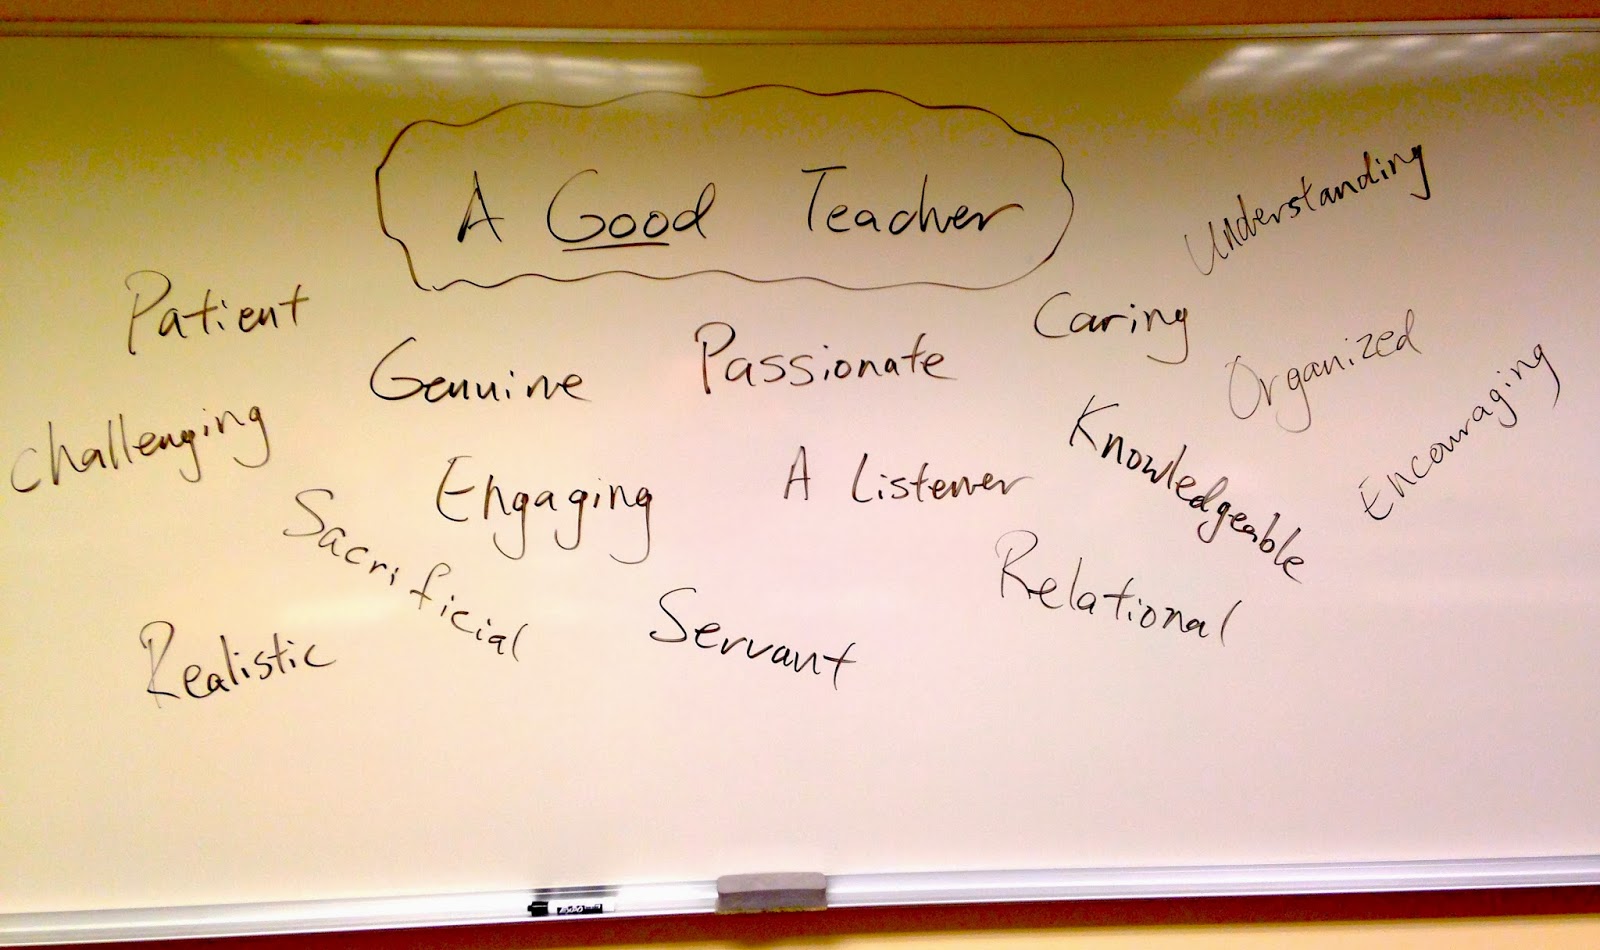 A Good Teacher
Understanding
Patient
Genuine
Passionate
Caring
Organized
Challenging
Engaging
A Listener
Knowledgeable
Encouraging
Sacrificial
Servant
Relational
Realistic
EXPO